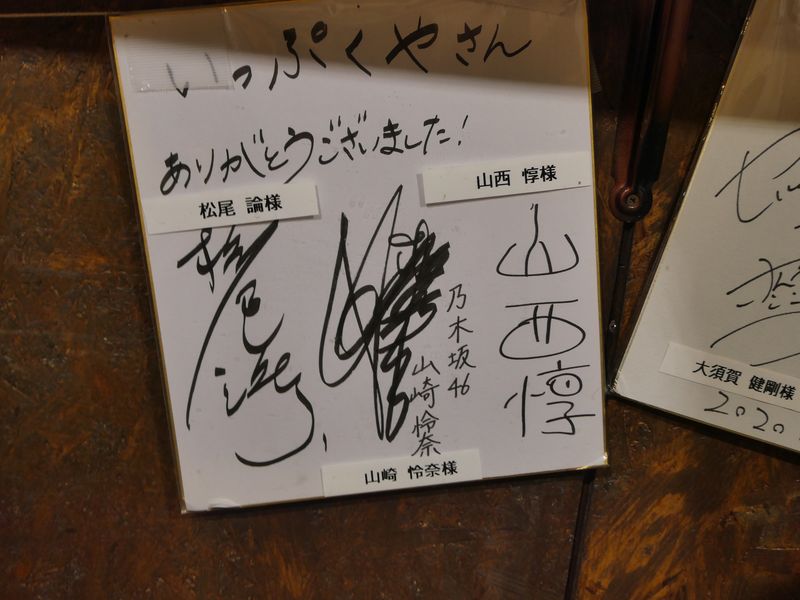 いっぷくやさん
ありがとうございました!
山西 惇様
松尾 諭様
山西惇
乃木坂46
山崎怜奈
山崎 怜奈様
大須賀 健剛様
2020